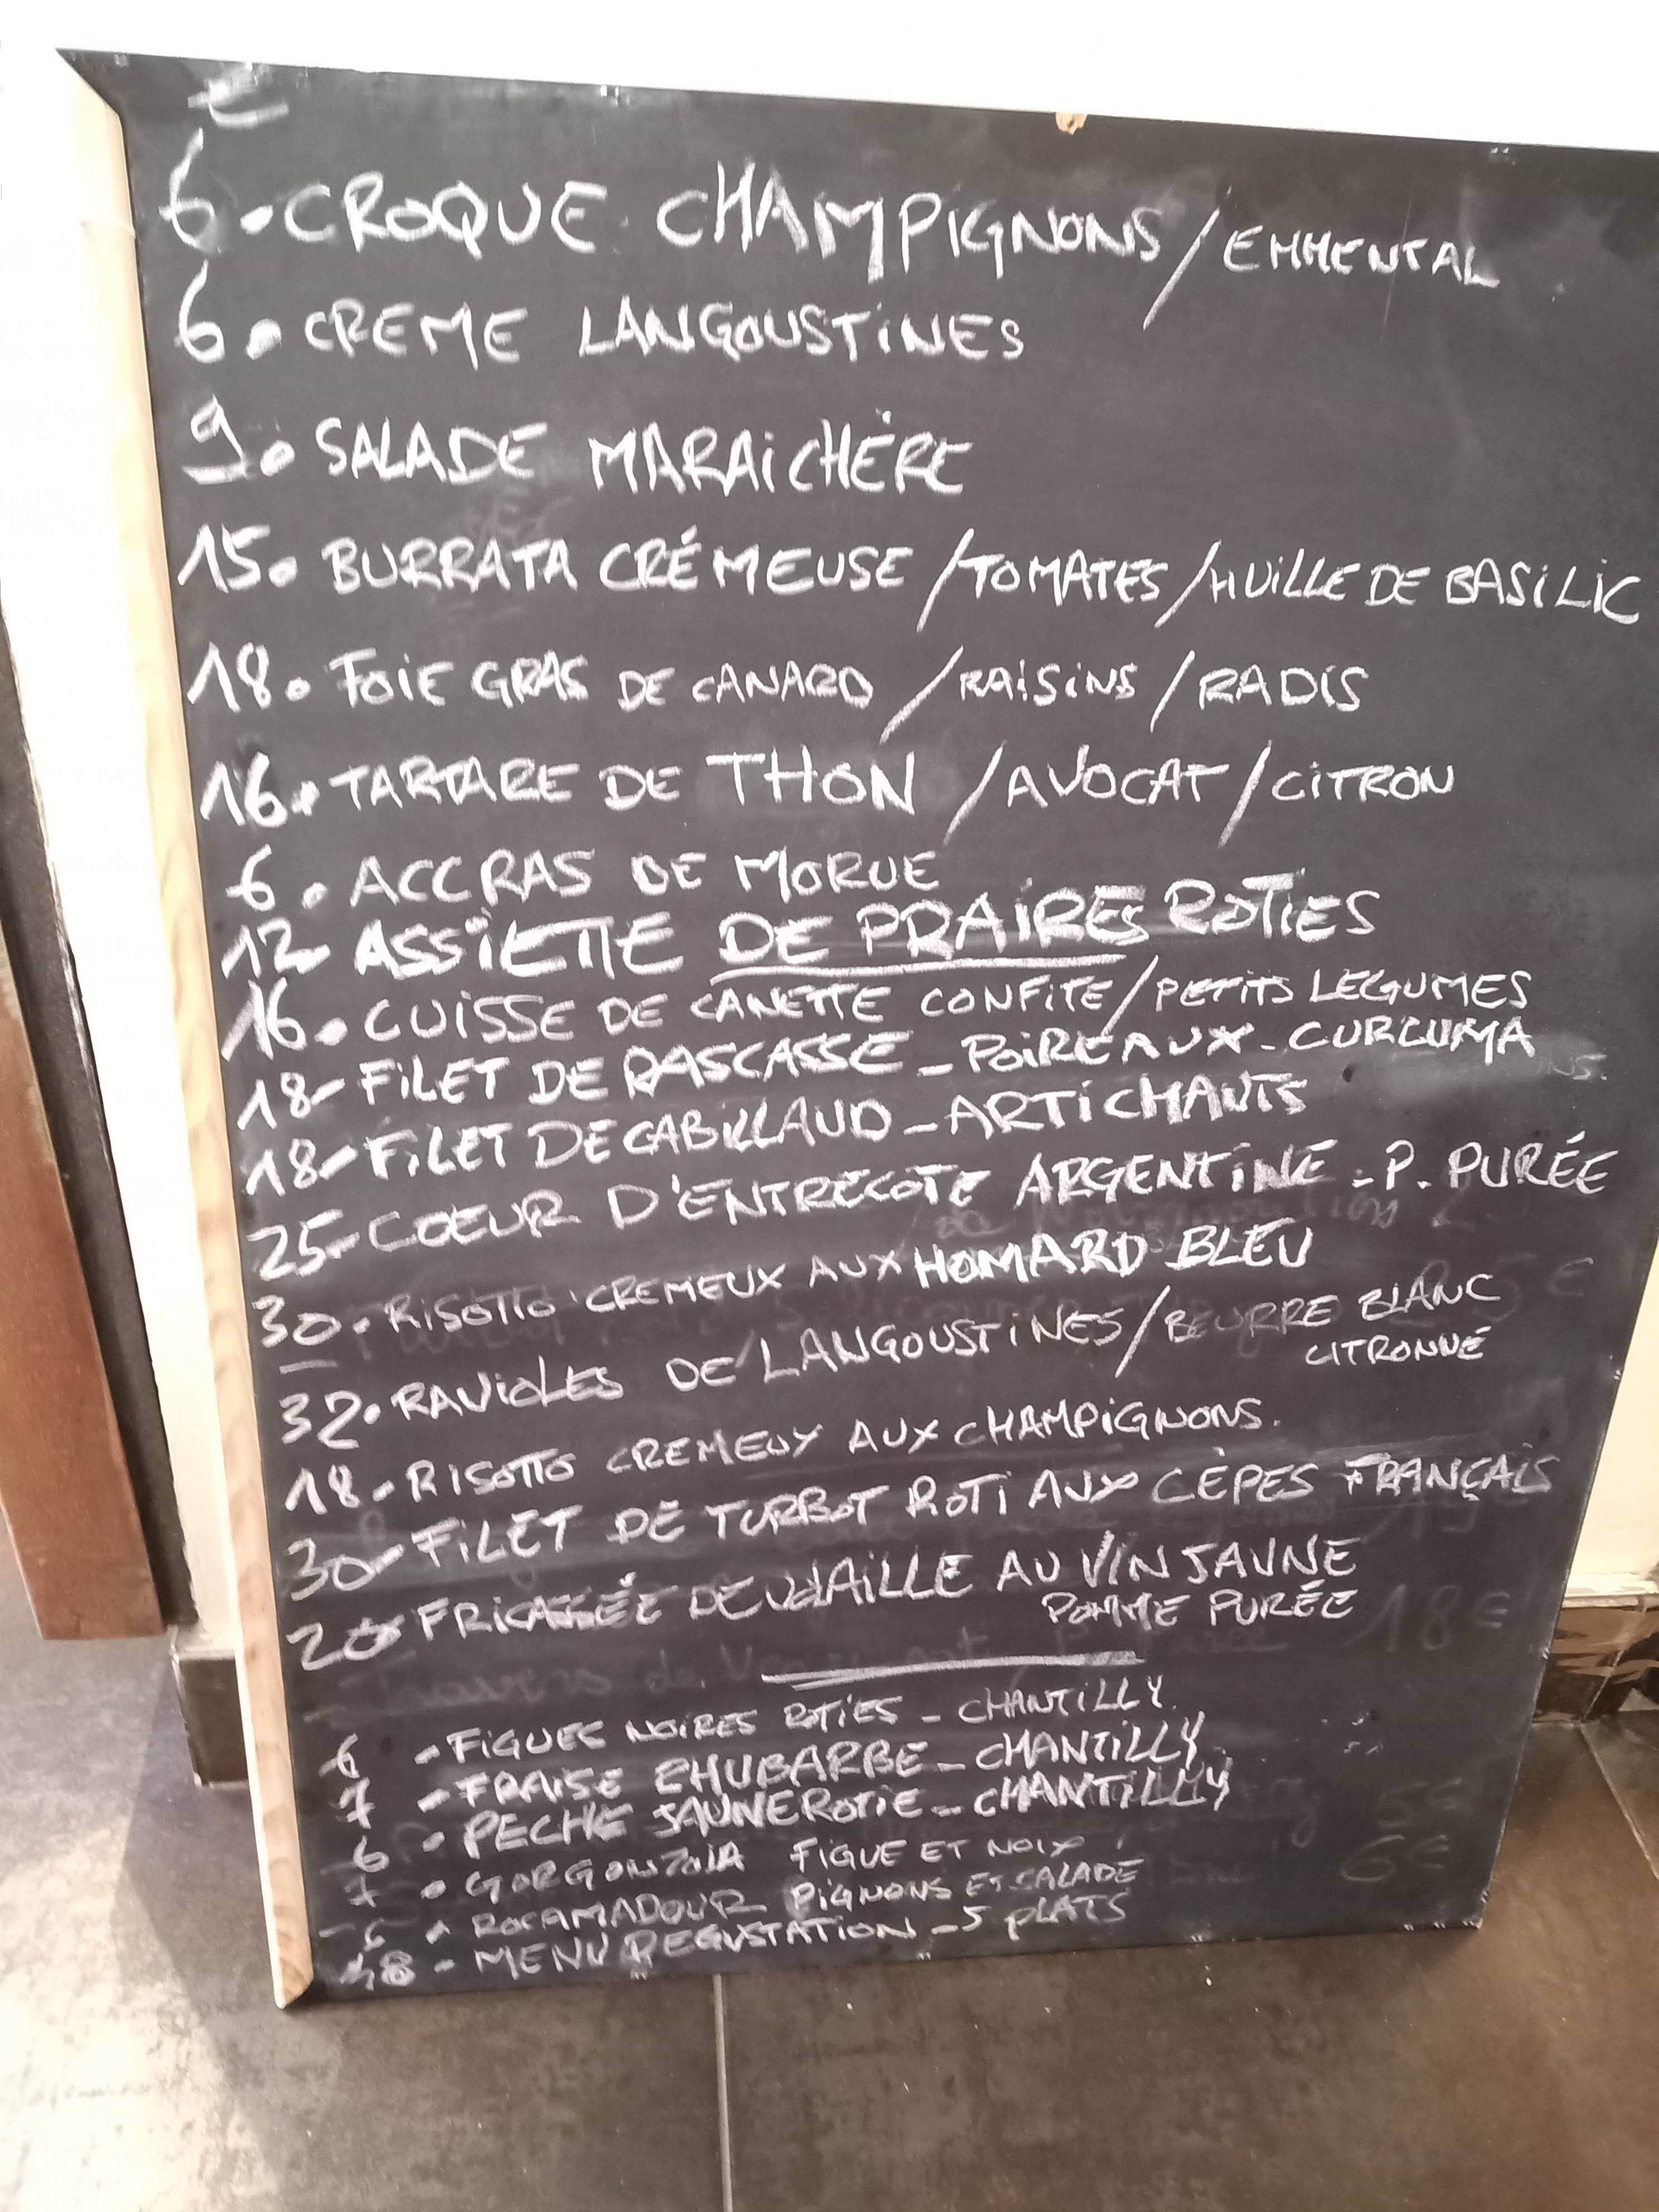 €
6. CROQUE CHAMPIGNONS / EMMENTAL
6. CREME LANGOUSTINES
9. SALADE MARAICHÈRE
15. BURRATA CRÉMEUSE / TOMATES / HUILLE DE BASILIC
18. FOIE GRAS DE CANARD / RAISINS / RADIS
16. TARTARE DE THON / AVOCAT / CITRON
6. ACCRAS DE MORUE
12- ASSIETTE DE PRAIRES ROTIES
16. CUISSE DE CANETTE CONFITE / PETITS LEGUMES
18- FILET DE RASCASSE - POIREAUX - CURCUMA
18- FILET DE CABILLAUD - ARTICHAUTS
25- COEUR D'ENTRECOTE ARGENTINE - P. PURÉE
30. RISOTTO CREMEUX AUX HOMARD BLEU
32. RAVIOLES DE LANGOUSTINES / BEURRE BLANC
CITRONNÉ
18. RISOTTO CREMEUX AUX CHAMPIGNONS.
30- FILET DE TURBOT ROTI AUX CÈPES FRANÇAIS
20 FRICASSÉE DE VOLAILLE AU VIN JAUNE
POMME PURÉE
18€
6 - FIGUES NOIRES ROTIES - CHANTILLY
7 - FRAISE RHUBARBE - CHANTILLY
6 - PECHE JAUNE ROTIE - CHANTILLY
7 . GORGONZOLA FIGUE ET NOIX
6 . ROCAMADOUR PIGNONS ET SALADE
48 - MENU DEGUSTATION - 5 PLATS
5€
6€